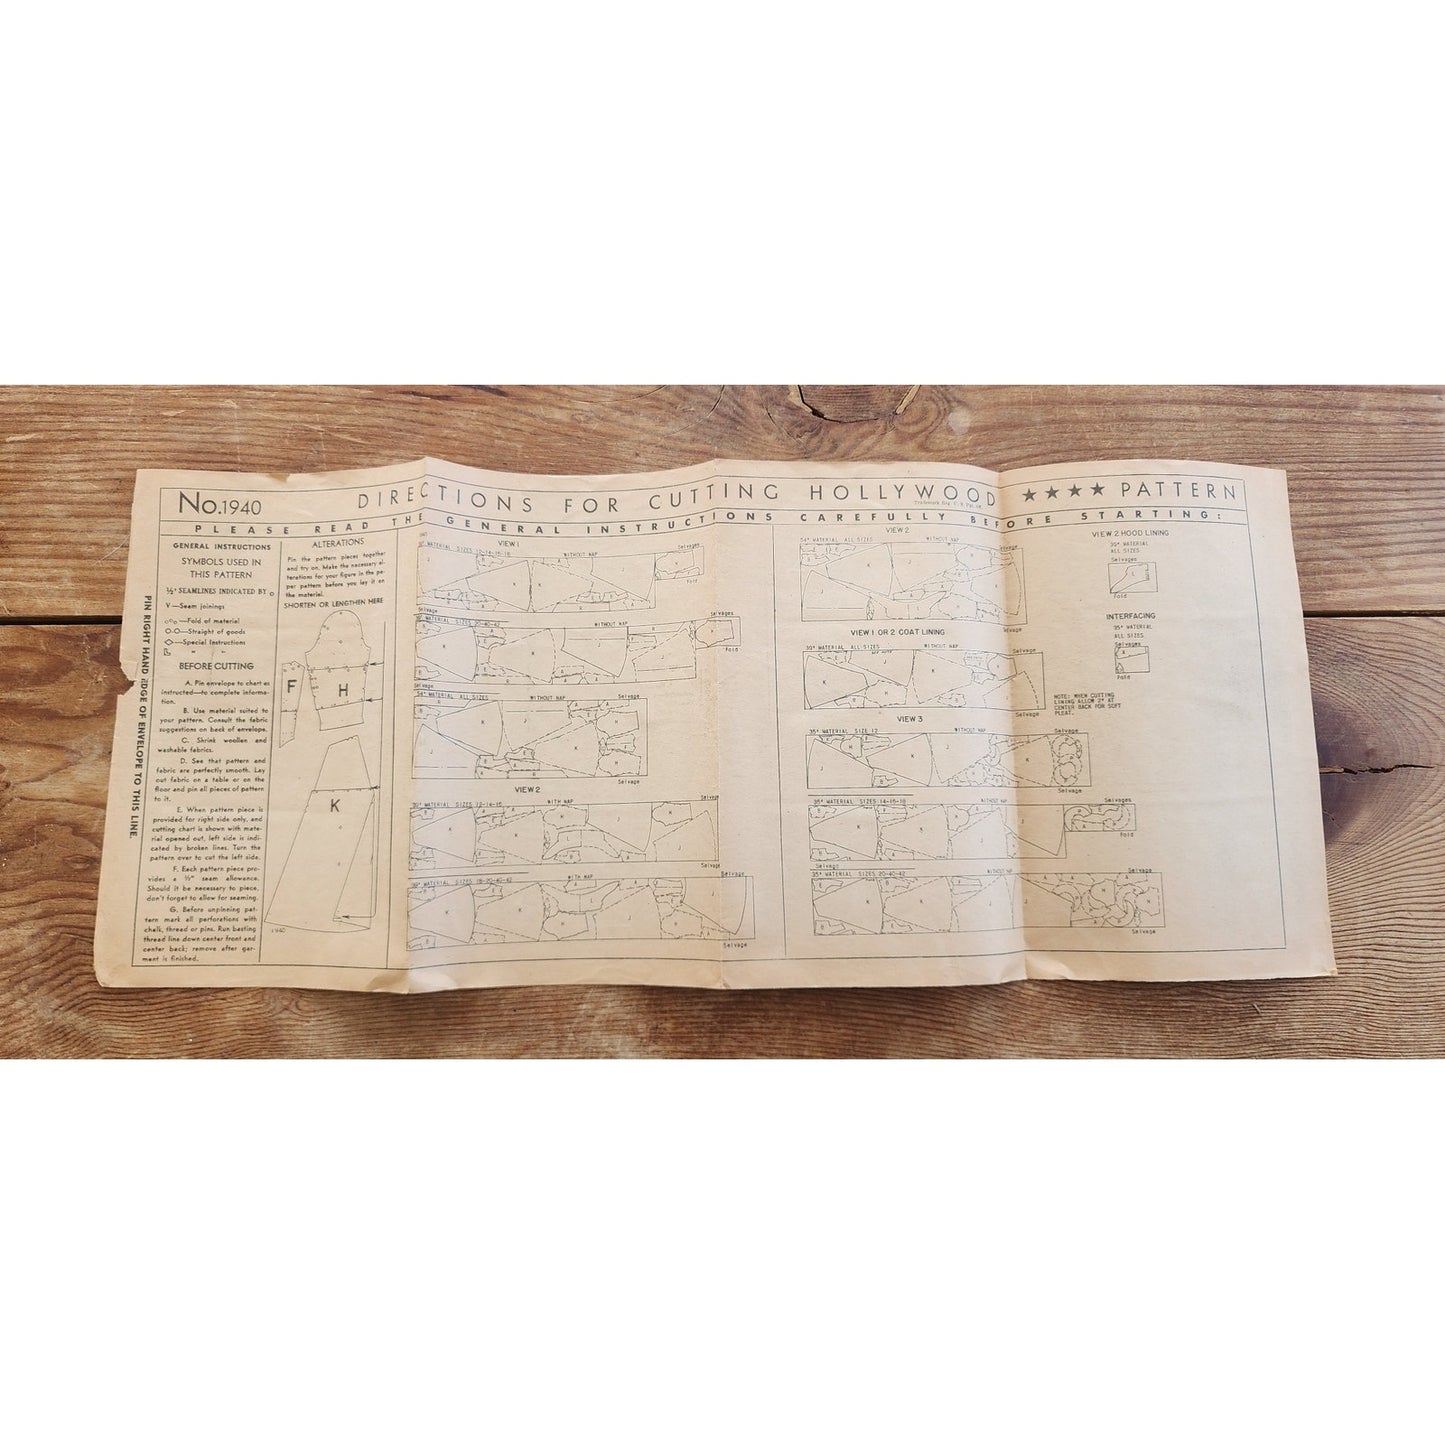 No.1940 DIRECTIONS FOR CUTTING HOLLYWOOD ★★★★ PATTERN
Trademark Reg. U. S. Pat. Off.
PLEASE READ THE GENERAL INSTRUCTIONS CAREFULLY BEFORE STARTING:
PIN RIGHT HAND EDGE OF ENVELOPE TO THIS LINE.
GENERAL INSTRUCTIONS
SYMBOLS USED IN
THIS PATTERN
½" SEAMLINES INDICATED BY o
V—Seam joinings
—Fold of material
O-O—Straight of goods
◇—Special Instructions
" "
BEFORE CUTTING
A. Pin envelope to chart as
instructed—to complete informa-
tion.
B. Use material suited to
your pattern. Consult the fabric
suggestions on back of envelope.
C. Shrink woollen and
washable fabrics.
D. See that pattern and
fabric are perfectly smooth. Lay
out fabric on a table or on the
floor and pin all pieces of pattern
to it.
E. When pattern piece is
provided for right side only, and
cutting chart is shown with mate-
rial opened out, left side is indi-
cated by broken lines. Turn the
pattern over to cut the left side.
F. Each pattern piece pro-
vides a ½" seam allowance.
Should it be necessary to piece,
don't forget to allow for seaming.
G. Before unpinning pat-
tern mark all perforations with
chalk, thread or pins. Run basting
thread line down center front and
center back; remove after gar-
ment is finished.
ALTERATIONS
Pin the pattern pieces together
and try on. Make the necessary al-
terations for your figure in the pa-
per pattern before you lay it on
the material.
SHORTEN OR LENGTHEN HERE
F H
K
1940
VIEW 1
MATERIAL SIZES 12-14-16-18 WITHOUT NAP Selvages
Fold
Selvage
SIZES 20-40-42 WITHOUT NAP Selvages
Fold
Selvage
54" MATERIAL ALL SIZES WITHOUT NAP Selvage
Selvage
VIEW 2
39" MATERIAL SIZES 12-14-16 WITH NAP Selvage
Selvage
39" MATERIAL SIZES 18-20-40-42 WITH NAP Selvage
Selvage
VIEW 2
54" MATERIAL ALL SIZES WITHOUT NAP Selvage
Selvage
VIEW 1 OR 2 COAT LINING
39" MATERIAL ALL SIZES WITHOUT NAP Selvage
Selvage
NOTE: WHEN CUTTING
LINING ALLOW 2" AT
CENTER BACK FOR SOFT
PLEAT.
VIEW 3
35" MATERIAL SIZE 12 WITHOUT NAP Selvage
Selvage
35" MATERIAL SIZES 14-16-18 WITHOUT NAP Selvages
Fold
Selvage
35" MATERIAL SIZES 20-40-42 WITHOUT NAP Selvage
Selvage
VIEW 2 HOOD LINING
39" MATERIAL
ALL SIZES
Selvages
L
Fold
INTERFACING
35" MATERIAL
ALL SIZES
Selvages
A
Fold